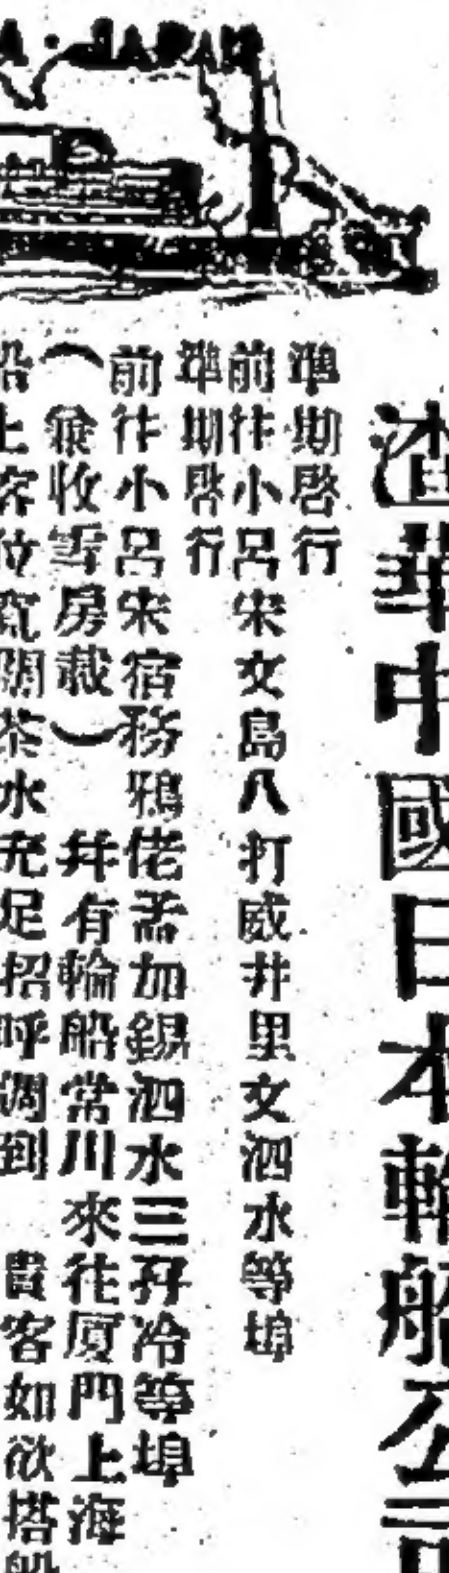 JAPAN
渣華中國日本輪船公司
準期啓行
前往小呂宋文島八打威井里文泗水等埠
準期啓行
前往小呂宋宿務鴉佬孟加錫泗水三孖冷等埠
(兼收雪房載) 并有輪船常川來往厦門上海
船上客位寬闊茶水充足招呼調到 貴客如欲搭船